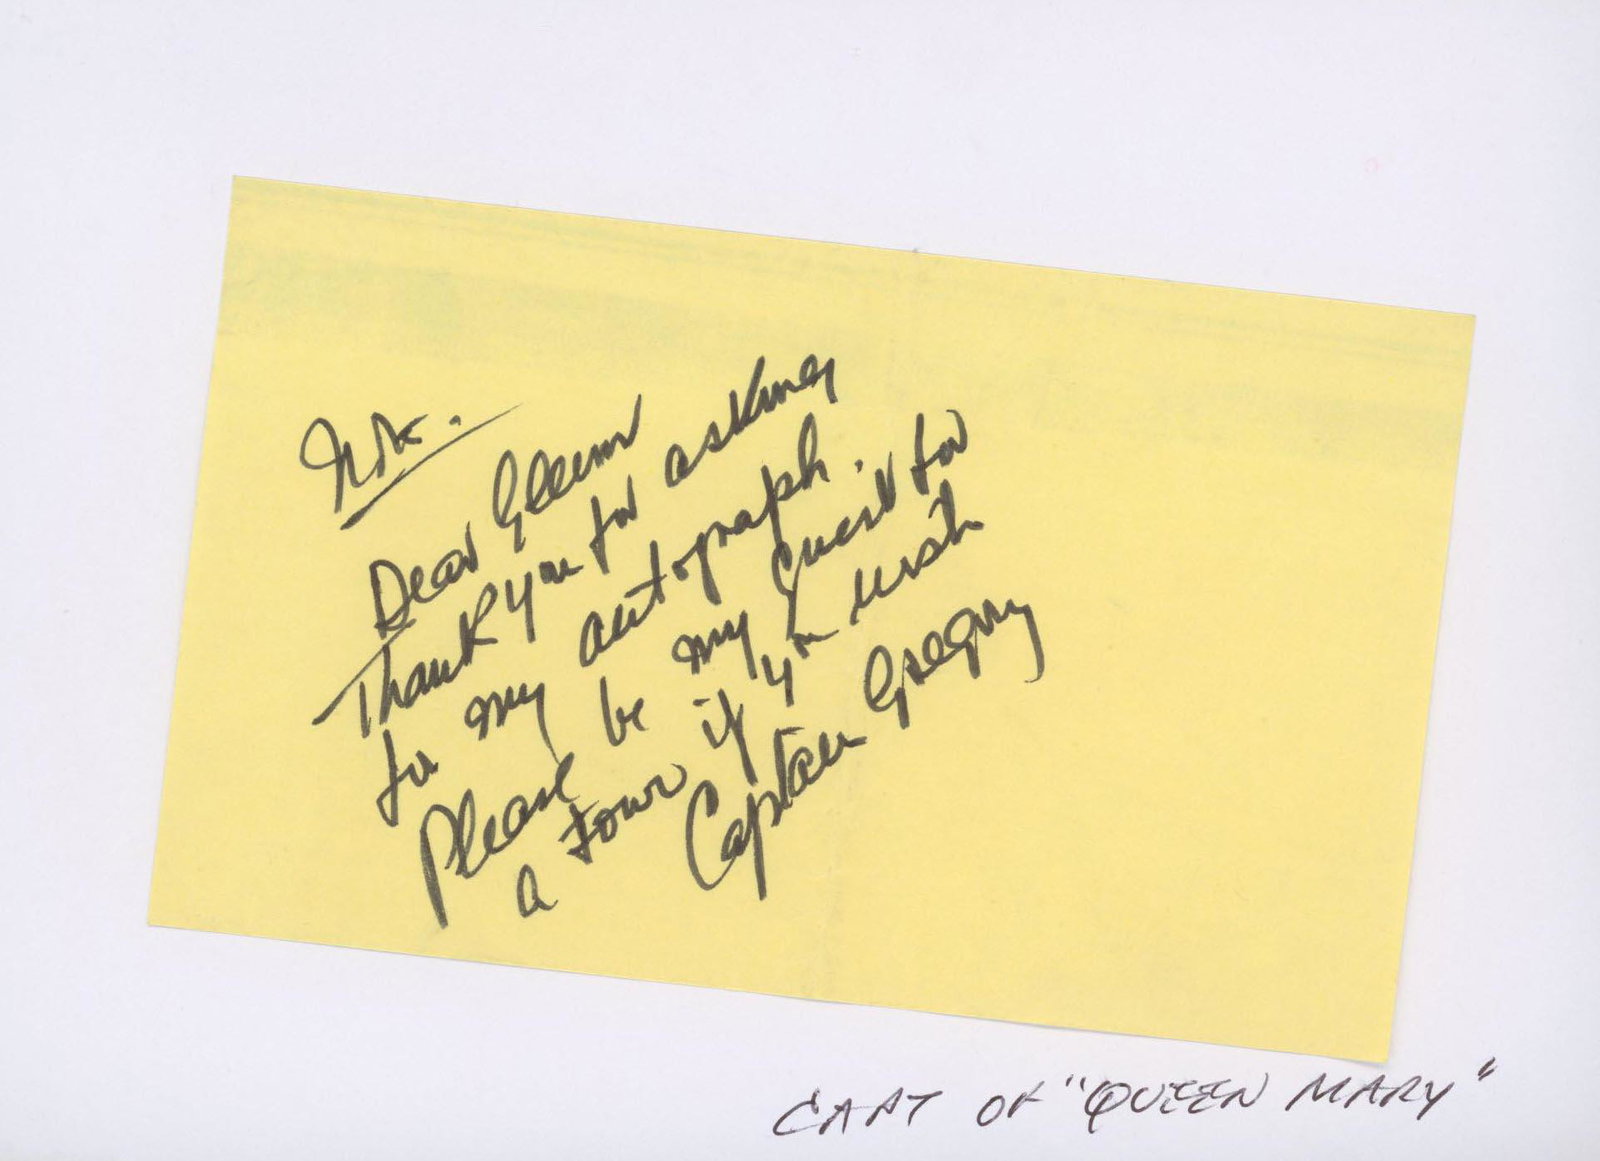 Note.
Dear Glenn
Thank you for asking
for my autograph.
Please be my guest for
a tour if you wish
Captain Gregory
CAPT OF "QUEEN MARY"